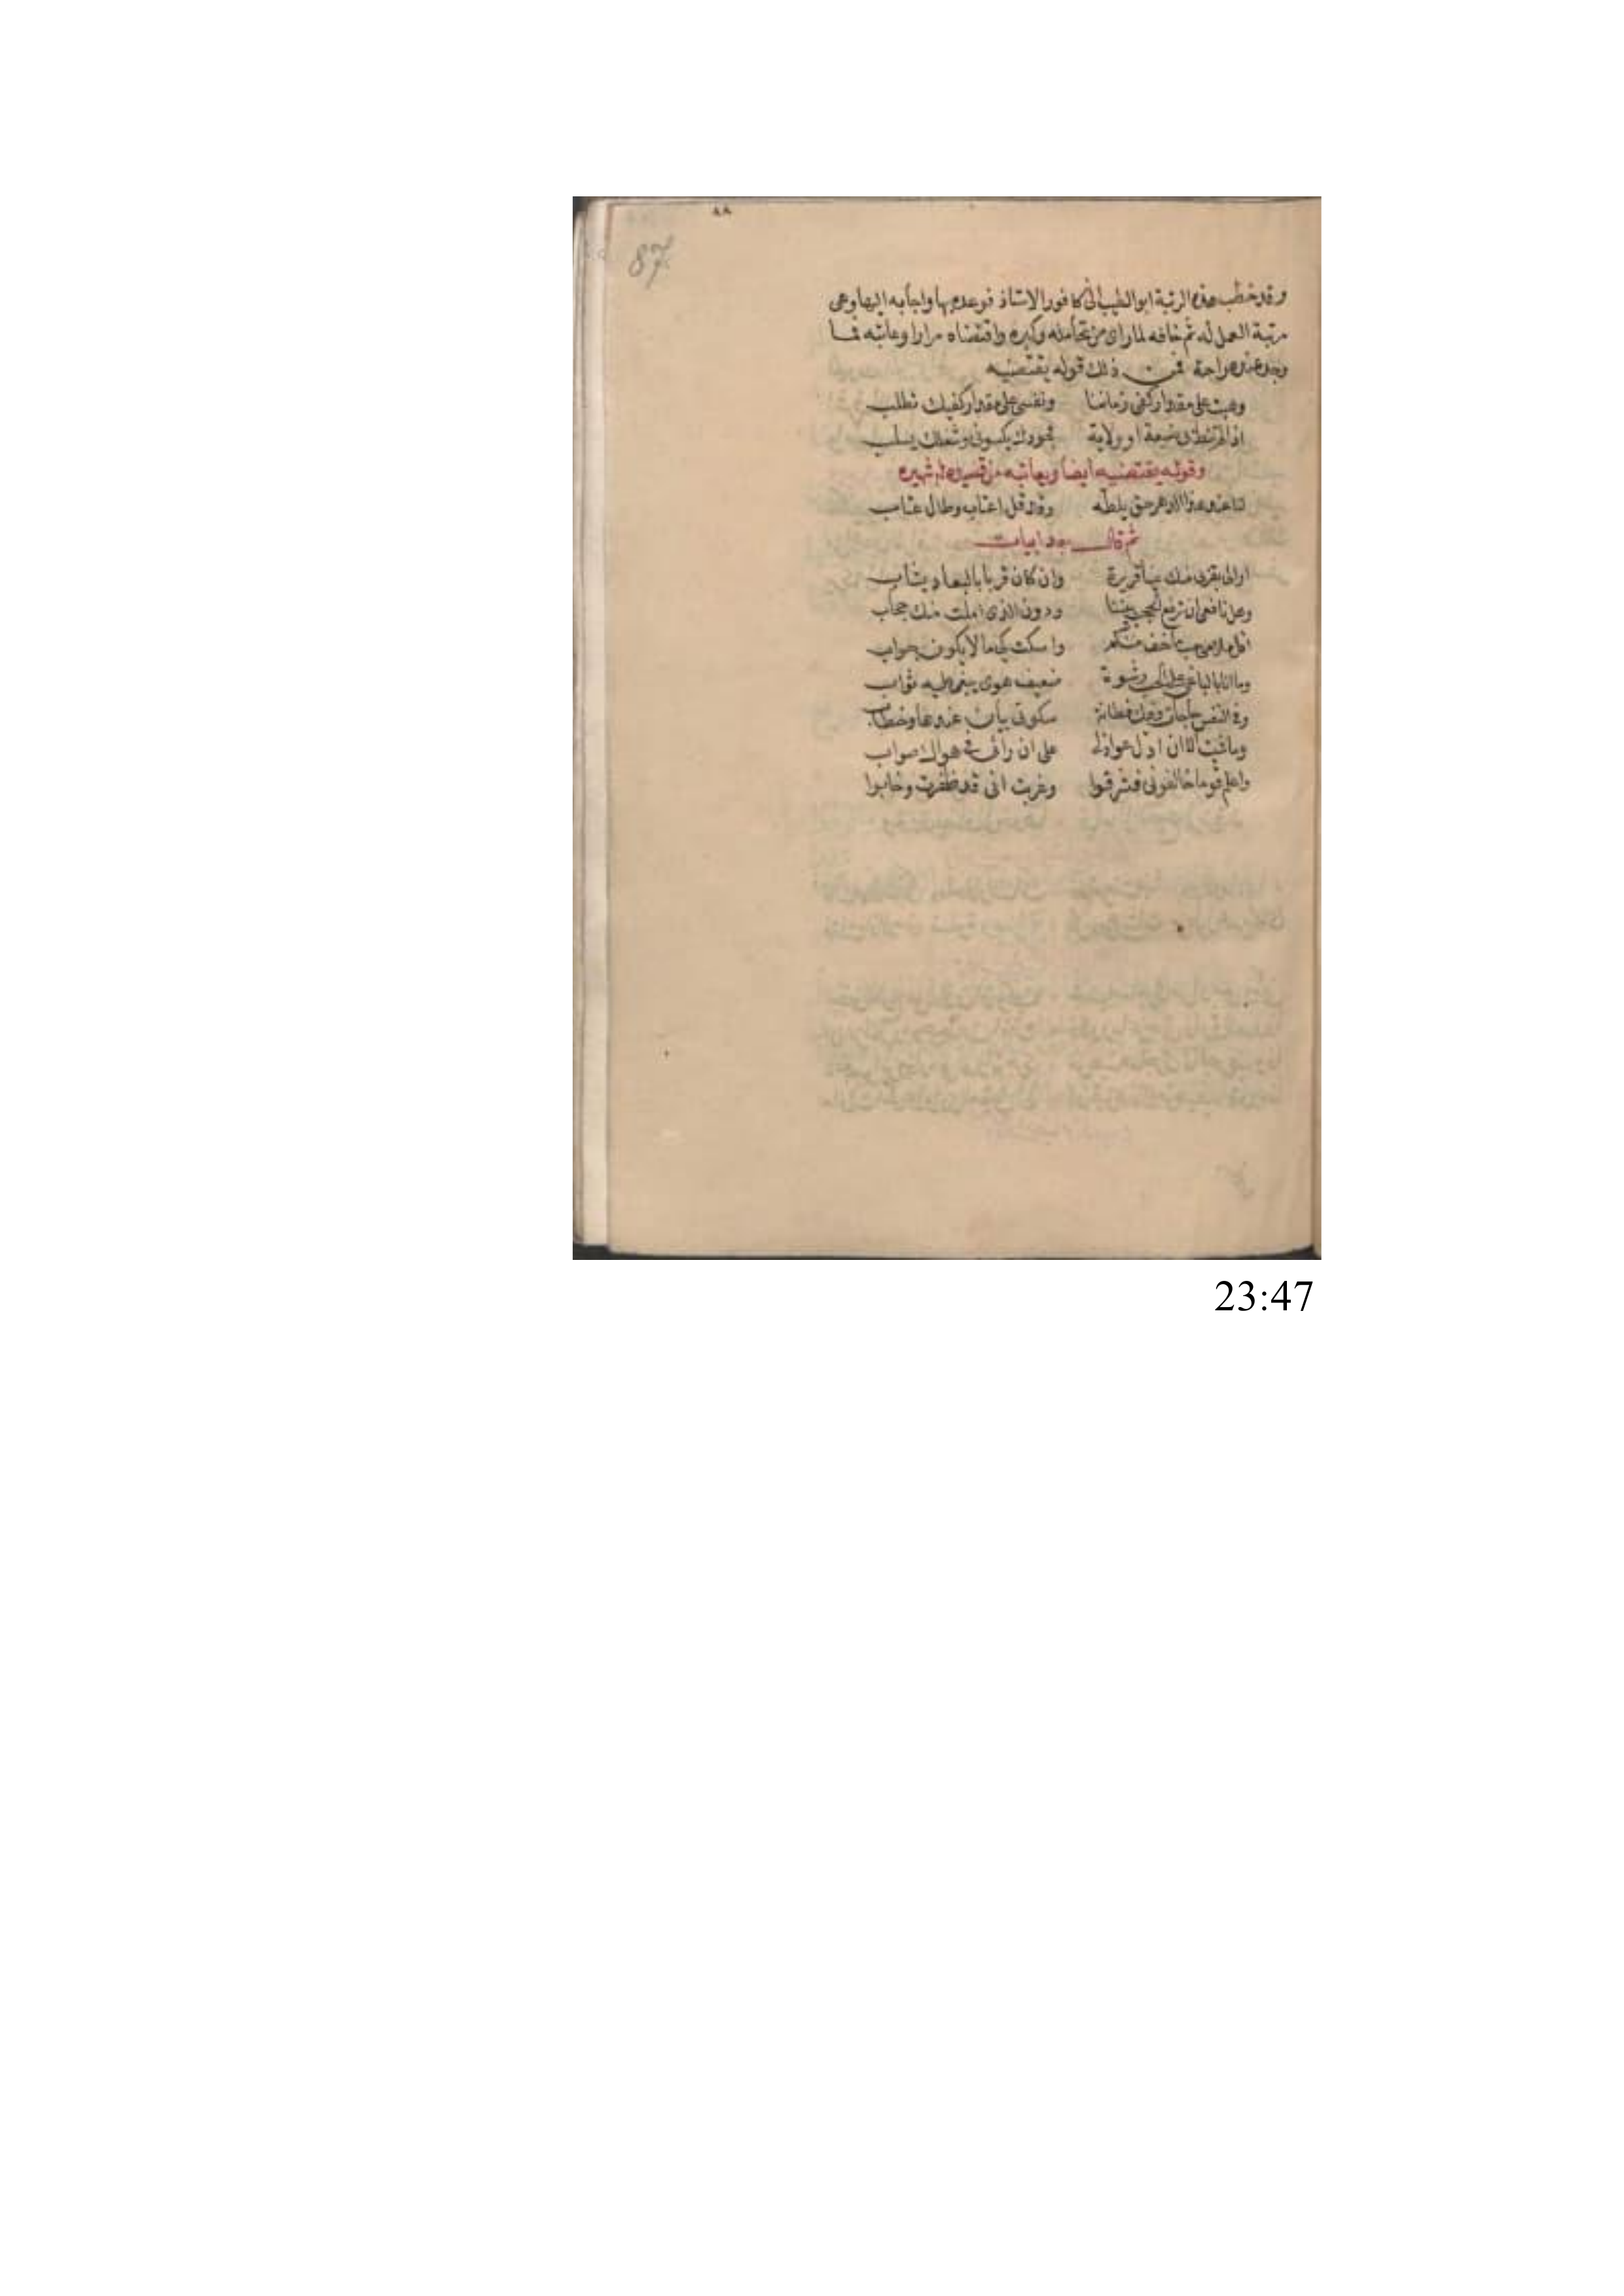 ٨٨
87
وقد خطب هذه الرتبة ابو الطيب الى كافور الاستاذ فوعده بها واجابه اليها وهى
مرتبة العمل له ثم خافه لما راى من تحامله وكبره واقتضاه مرارا وعاتبه فما
وجد عنده راحة فمن ذلك قوله يقتضيه
وهبت على مقدار كفى زماننا ونفسى على مقدار كفيك تطلب
اذا لم تنط بى ضيعة او ولاية فجودك يكسونى وشغلك يسلب
وقوله يقتضيه ايضا ويعاتبه من قصيدة له شهيرة
لنا عند هذا الدهر حق يلطه وقد قل اعتاب وطال عتاب
ثم قال بعد ابيات
ارى لى بقربى منك عينا قريرة وان كان قربا بالبعاد يشاب
وهل نافعى ان ترفع الحجب بيننا ودون الذى املت منك حجاب
اقل سلامى حب ما خف عنكم واسكت كيما لا يكون جواب
وما انا بالباغى على الحب رشوة ضعيف هوى يبغى عليه ثواب
وفى النفس حاجات وفيك فطانة سكوتى بيان عندها وخطاب
وما شئت الا ان ادل عواذلى على ان رائى فى هواك صواب
واعلم قوما خالفونى فشرقوا وغربت انى قد ظفرت وخابوا
23:47